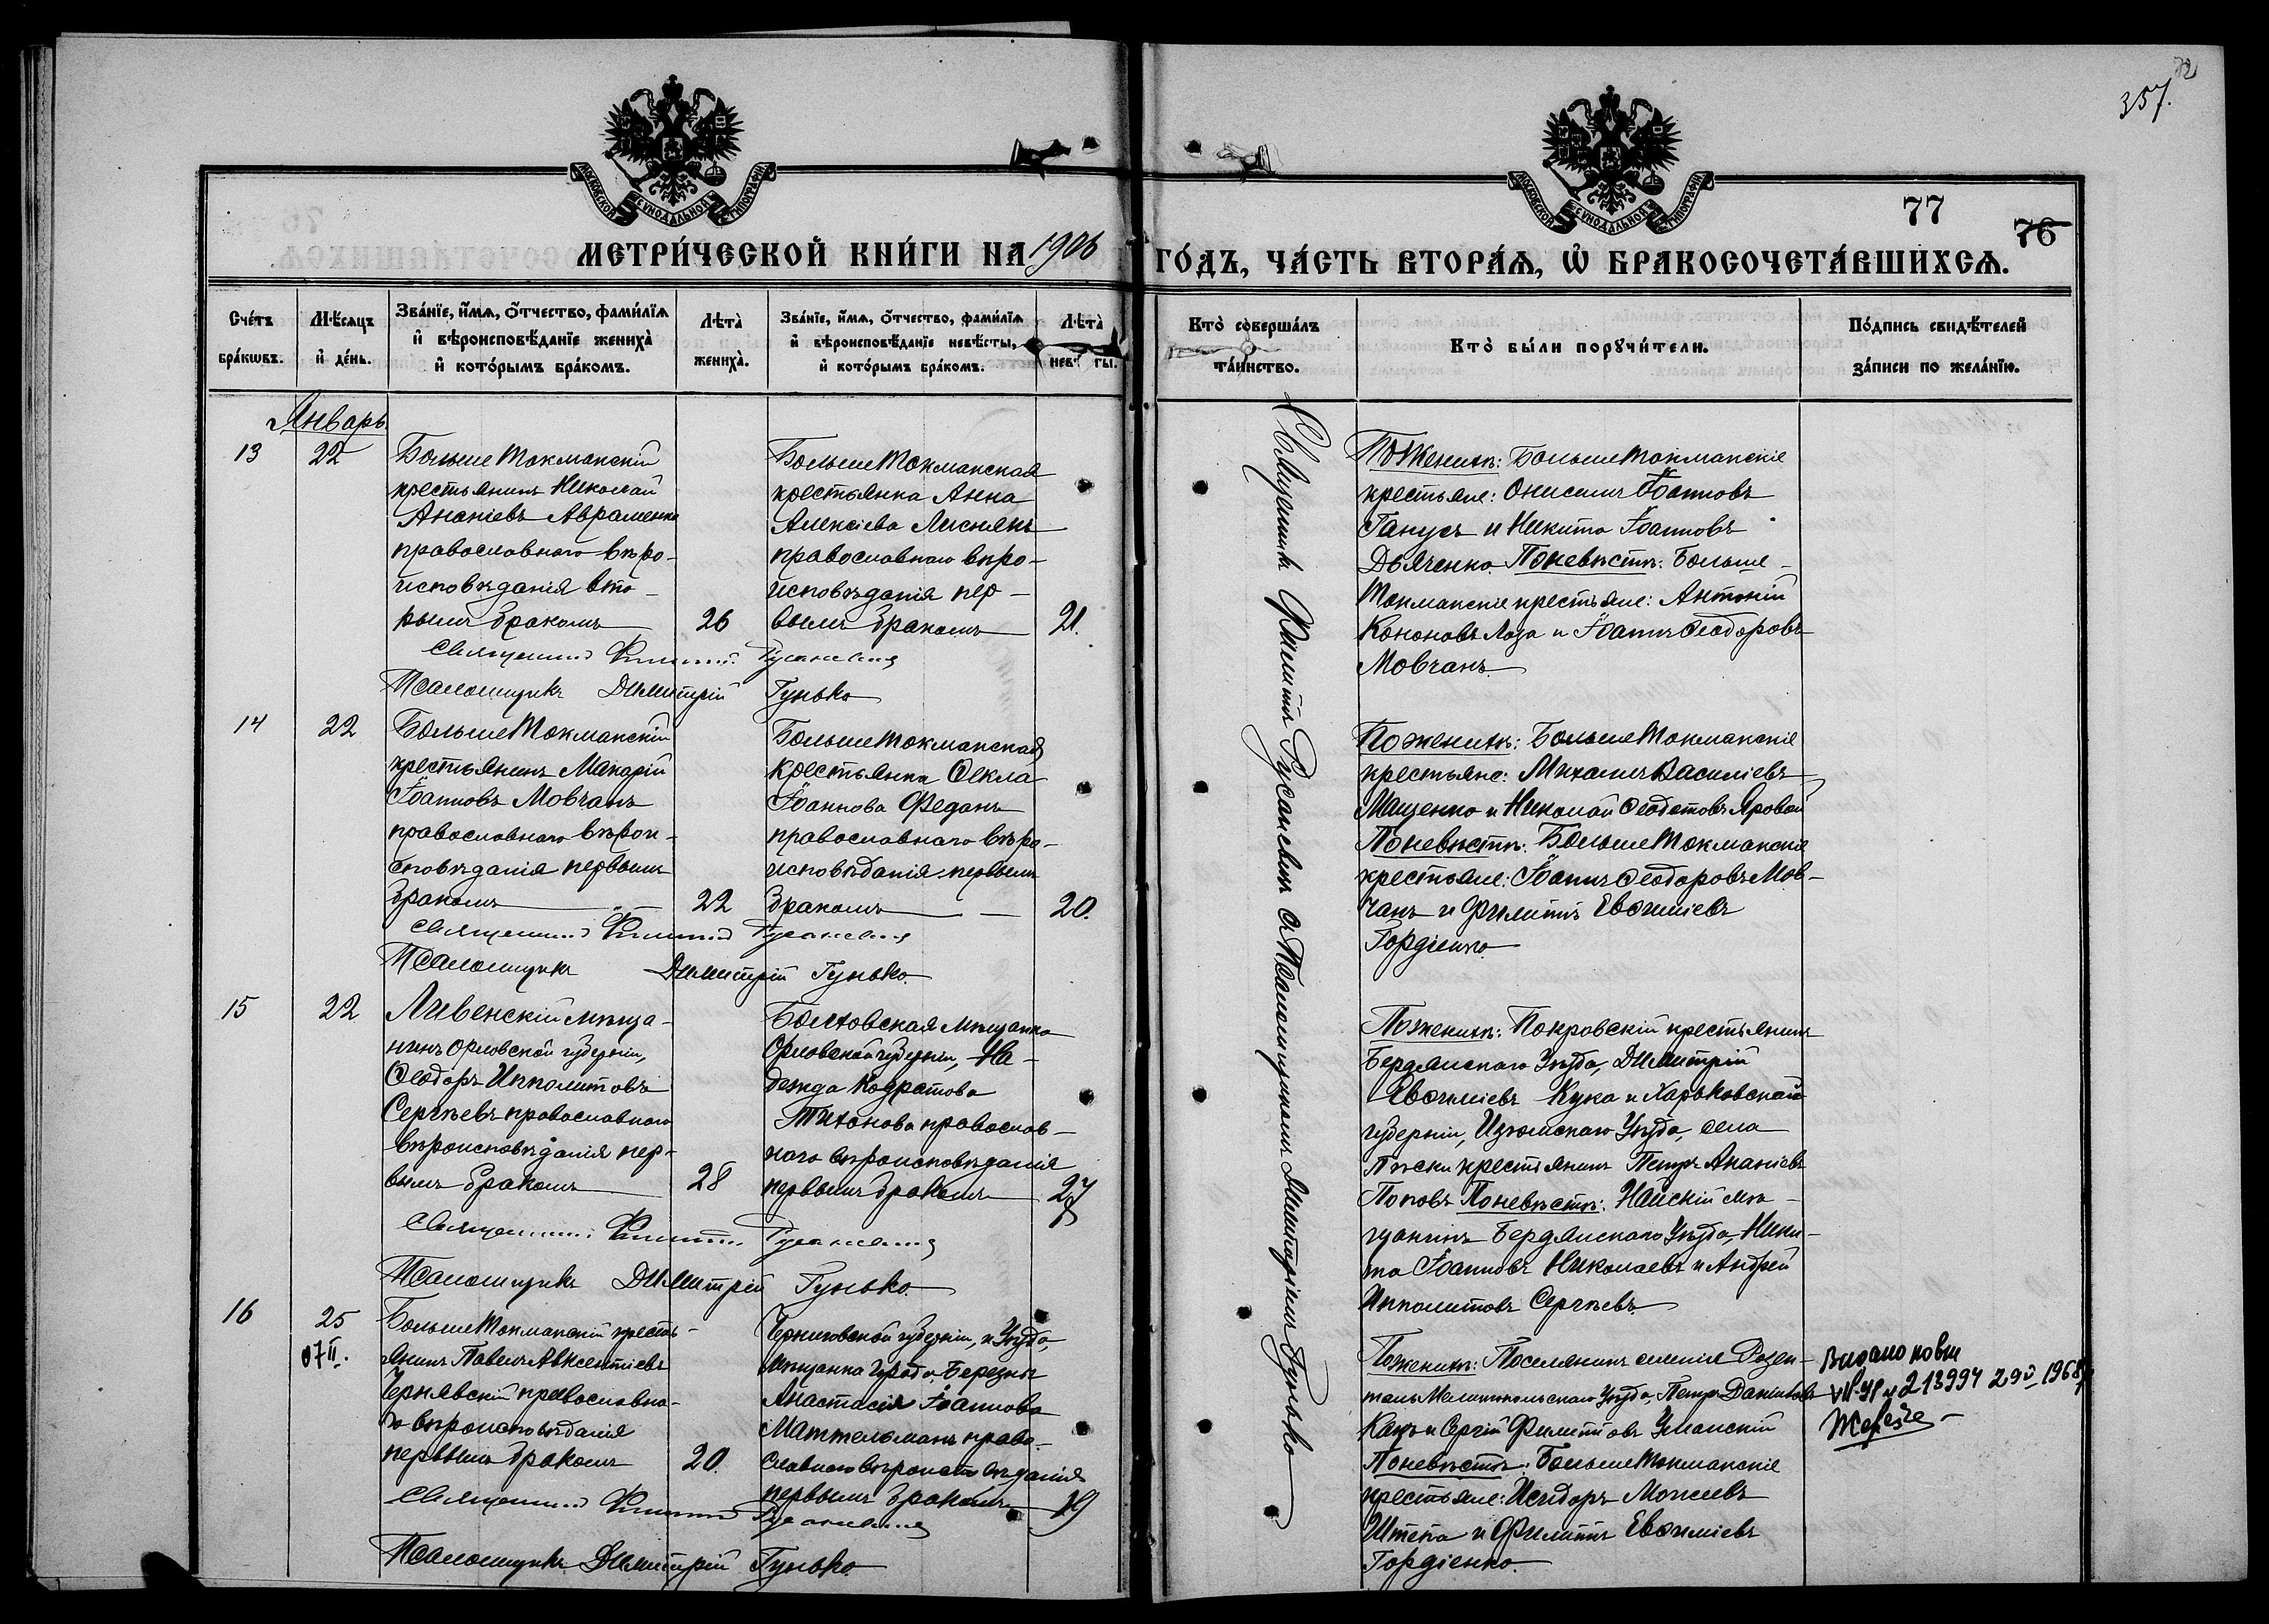 357.
72
МОСКОВСКОЙ СѴНОДАЛЬНОЙ ТИПОГРАФІИ
МОСКОВСКОЙ СѴНОДАЛЬНОЙ ТИПОГРАФІИ
77
76
МЕТРИ́ЧЕСКОЙ КНИ́ГИ НА 1906 ГО́ДЪ, ЧА́СТЬ ВТОРА́Ѧ, Ѡ҆ БРАКОСОЧЕТА́ВШИХСѦ.
Сче́тъ бра́кѡвъ.
Мѣ́сяцъ и҆ де́нь.
Зва́нїе, и҆́мѧ, ѻ҆́тчество, фами́лїѧ
и҆ вѣроисповѣ́данїе жениха̀
и҆ кото́рымъ бра́комъ.
Лѣта̀ жениха̀.
Зва́нїе, и҆́мѧ, ѻ҆́тчество, фами́лїѧ
и҆ вѣроисповѣ́данїе невѣ́сты,
и҆ кото́рымъ бра́комъ.
Лѣта̀
Кто̀ соверша́лъ та́инство.
Кто̀ бы́ли порꙋчи́тели.
По́дпись свидѣ́телей
за́писи по жела́нїю.
Январь.
13
22
Больше Токмакскій
крестьянинъ Николай
Ананіевъ Авраменко
православнаго вѣро-
исповѣданія вто-
рымъ бракомъ
26
Больше Токмакская
крестьянка Анна
Алексіева Лиснякъ
православнаго вѣро-
исповѣданія пер-
вымъ бракомъ
21.
Священникъ Филиппъ Русаневичъ
Псаломщикъ Димитрій Гунько
По женихѣ: Больше Токмакскіе
крестьяне: Онисимъ Іоанновъ
Ганусъ и Никита Іоанновъ
Дьяченко. По невѣстѣ: Больше-
Токмакскіе крестьяне: Антоній
Кононовъ Лоза и Іоаннъ Ѳеодоровъ
Мовчанъ.
14
22
Больше Токмакскій
крестьянинъ Макарій
Іоанновъ Мовчанъ
православнаго вѣрои-
сповѣданія первымъ
бракомъ
22
Больше Токмакская
крестьянка Ѳекла
Іоаннова Феданъ
православнаго вѣро-
исповѣданія первымъ
бракомъ
20.
Священникъ Филиппъ Русаневичъ
Псаломщикъ Димитрій Гунько.
По женихѣ: Больше Токмакскіе
крестьяне: Михаилъ Василіевъ
Мащенко и Николай Ѳеодотовъ Яровой
По невѣстѣ: Больше Токмакскіе
крестьяне: Іоаннъ Ѳеодоровъ Мов-
чанъ и Филиппъ Евѳиміевъ
Гордіенко.
15
22
Ливенскій мѣща-
нинъ Орловской губерніи,
Ѳеодоръ Ипполитовъ
Сергѣевъ православнаго
вѣроисповѣданія пер-
вымъ бракомъ
28
Болховская мѣщанка
Орловской губерніи, На-
дежда Кодратова
Тихонова православ-
наго вѣроисповѣданія
первымъ бракомъ
27
Священникъ Филиппъ Русаневичъ
Псаломщикъ Димитрій Гунько.
По женихѣ: Покровскій крестьянинъ
Бердянскаго Уѣзда, Димитрій
Евѳиміевъ Кука и Харьковской
губерніи, Изюмскаго Уѣзда, села
Пѣски крестьянинъ Петръ Ананіевъ
Поповъ По невѣстѣ: мѣ-
щанинъ Бердянскаго Уѣзда, Ники-
та Іоанновъ Николаевъ и Андрей
Ипполитовъ Сергѣевъ.
16
25
07 II.
Больше Токмакскій кресть-
янинъ Павелъ Авксентіевъ
Чернявскій православна-
го вѣроисповѣданія
первымъ бракомъ
20.
Черниговской губерніи, и Уѣзда,
мѣщанка города Березны
Анастасія Іоаннова
Маттельманъ право-
славнаго вѣроисповѣданія
первымъ бракомъ
19
Священникъ Филиппъ Русаневичъ
Псаломщикъ Димитрій Гунько.
По женихѣ: Поселянинъ селенія Розен-
таль Мелитопольскаго Уѣзда, Петръ Даниловъ
Кацъ и Сергій Филипповъ Уманскій
По невѣстѣ: Больше Токмакскіе
крестьяне: Исидоръ Моисеевъ
Штепа и Филиппъ Евѳиміевъ
Гордіенко.
213994 1968
Священникъ Филиппъ Русаневичъ съ Псаломщикомъ Димитріемъ Гунько